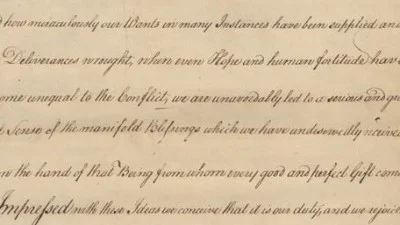 d how miraculously our Wants in many Instances have been supplied and
Deliverances wrought, when even Hope and human fortitude have
ome unequal to the Conflict; we are unavoidably led to a serious and gra
l Sense of the manifold Blessings which we have undeservedly receive
om the hand of that Being from whom every good and perfect Gift come
Impressed with these Ideas we conceive that it is our duty, and we rejoice